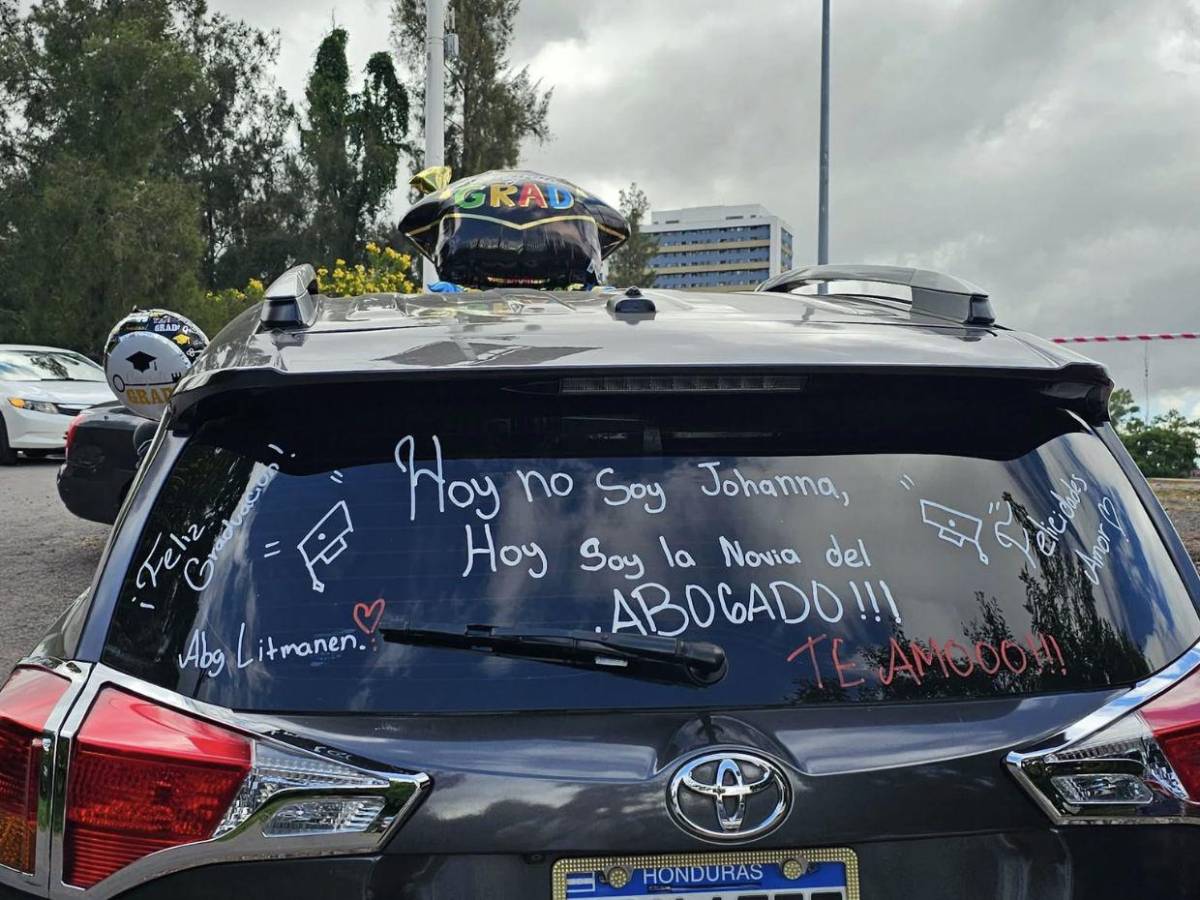 GRAD
GRAD
GRAD
Hoy no Soy Johanna,
Hoy Soy la Novia del
ABOGADO!!!
TE AMOOO!!!
¡Feliz
Graduación!
Abg Litmanen.
Felicidades
Amor
HONDURAS